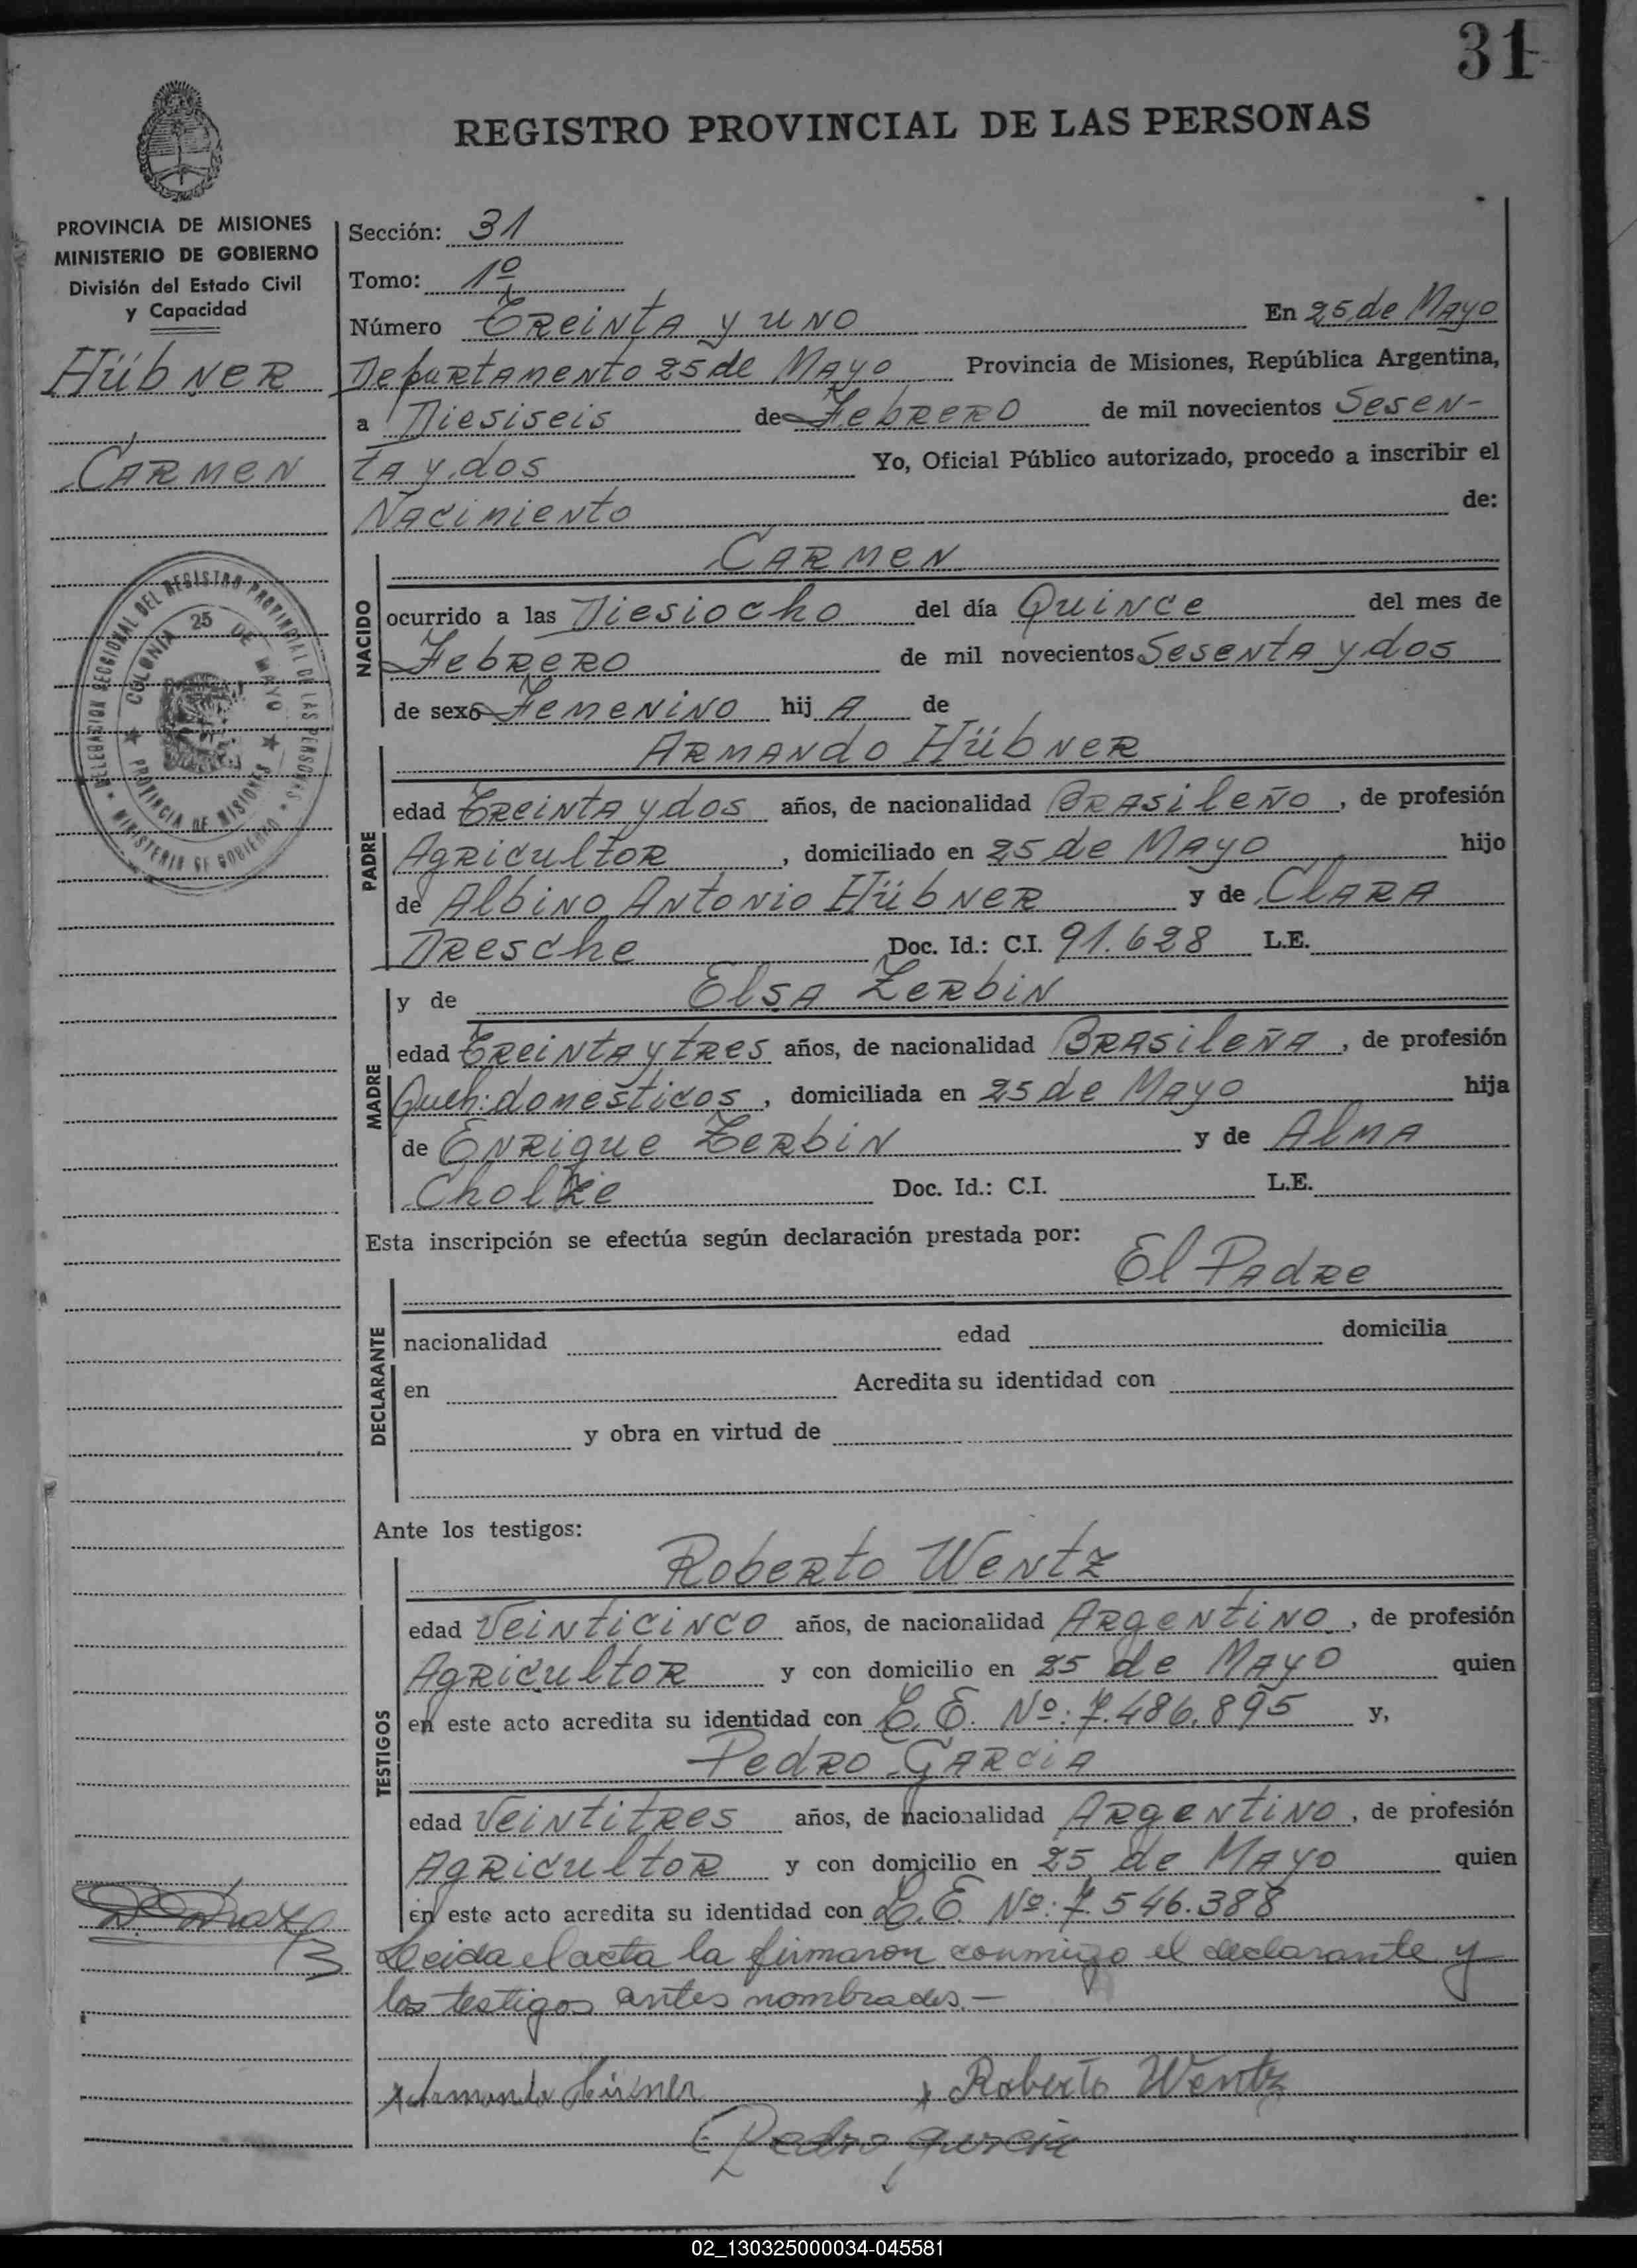 31
REGISTRO PROVINCIAL DE LAS PERSONAS
PROVINCIA DE MISIONES
MINISTERIO DE GOBIERNO
División del Estado Civil
y Capacidad
HübNeR
CARMeN
DELEGACION SECCIONAL DEL REGISTRO PROVINCIAL DE LAS PERSONAS
MINISTERIO DE GOBIERNO
COLONIA 25 DE MAYO
PROVINCIA DE MISIONES
Sección: 31
Tomo: 1º
Número TReiNtA y uNo En 25 de MAyo
DepaRtAmeNto 25 de MAyo Provincia de Misiones, República Argentina,
a Diesiseis de FebReRo de mil novecientos SeseN-
tA y dos Yo, Oficial Público autorizado, procedo a inscribir el
NAcimieNto de:
NACIDO
CARMeN
ocurrido a las Diesiocho del día QuiNce del mes de
FebReRo de mil novecientos SeseNtA y dos
de sexo FemeNiNo hij A de
PADRE
ARMANdo HübNeR
edad TReiNtA y dos años, de nacionalidad BRAsileÑo, de profesión
AgRicultoR, domiciliado en 25 de MAyo hijo
de AlbiNo ANtoNio HübNeR y de ClARA
DResche Doc. Id.: C.I. 91.628 L.E.
MADRE
y de ElsA ZeRbiN
edad TReiNtA y tRes años, de nacionalidad BRAsileÑA, de profesión
Queh: domesticos, domiciliada en 25 de MAyo hija
de ENRique ZeRbiN y de AlmA
Cholze Doc. Id.: C.I. L.E.
Esta inscripción se efectúa según declaración prestada por:
El PAdRe
DECLARANTE
nacionalidad edad domicilia
en Acredita su identidad con
y obra en virtud de
Ante los testigos:
TESTIGOS
RobeRto WeNtz
edad VeiNticiNco años, de nacionalidad ARgeNtiNo, de profesión
AgRicultoR y con domicilio en 25 de MAyo quien
en este acto acredita su identidad con L.E. Nº: 7.486.895 y,
PedRo GARciA
edad VeiNtitRes años, de nacionalidad ARgeNtiNo, de profesión
AgRicultoR y con domicilio en 25 de MAyo quien
en este acto acredita su identidad con L.E. Nº: 7.546.388
Leida el acta la firmaron conmigo el declarante y
los testigos antes nombrados.-
Armando Hübner Roberto Wentz
Pedro Garcia
02_130325000034-045581